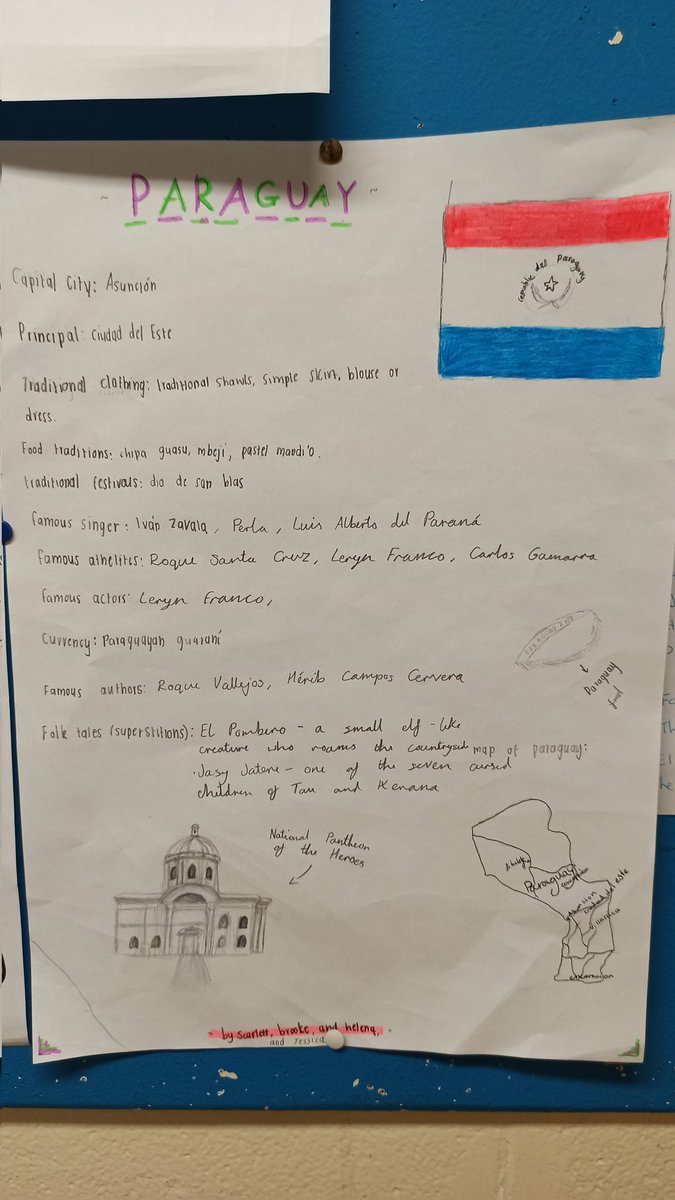 ~ PARAGUAY ~
republic del paraguay
Capital City: Asunción
Principal: Ciudad del Este
Traditional clothing: traditional shawls, simple skirt, blouse or
dress.
Food traditions: chipa guasu, mbeji, pastel mandi'o.
traditional festivals: dia de san blas
Famous singer: Iván Zavala, Perla, Luis Alberto del Paraná
Famous athelites: Roque Santa Cruz, Leryn Franco, Carlos Gamarra
Famous actors: Leryn Franco,
Currency: Paraguayan guaraní
PARAGUAY
Paraguay
food
Famous authors: Roque Vallejos, Hérib Campos Cervera
Folk tales (superstitions): El Pombero - a small elf-like
creature who roams the countryside
· Jasy Jatere - one of the seven cursed
children of Tau and Kerana
map of paraguay:
National Pantheon
of the Heroes
Paraguay
asuncion
ciudad del este
villarrica
encarnacion
- by scarlett, brooke, and helena,
and Jessica